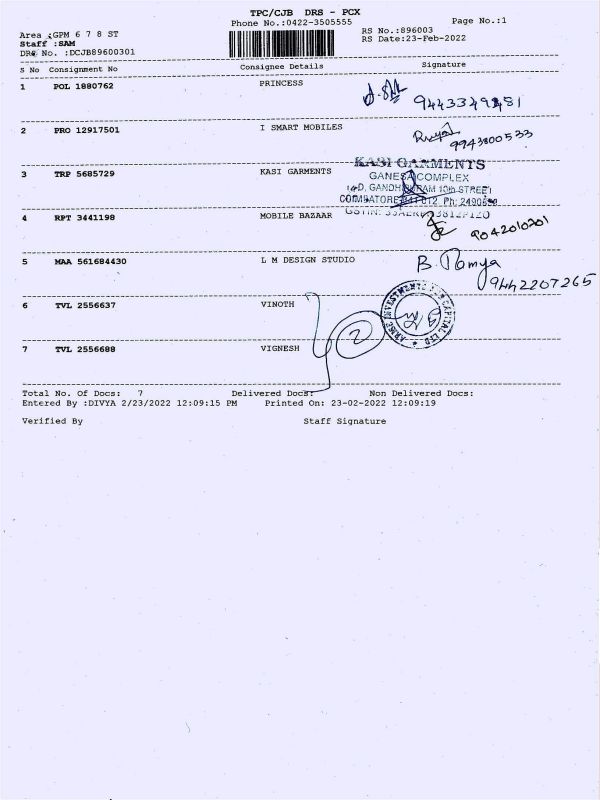 TPC/CJB DRS - PCX
Phone No.:0422-3505555
Page No.:1
Area :GPM 6 7 8 ST
RS No.:896003
Staff :SAM
RS Date:23-Feb-2022
DRS No. :DCJB89600301
S No Consignment No Consignee Details Signature
1 POL 1880762 PRINCESS
2 PRO 12917501 I SMART MOBILES
9943800533
KASI GARMENTS
3 TRP 5685729 KASI GARMENTS
GANESA COMPLEX
COIMBATORE
4 RPT 3441198 MOBILE BAZAAR
9042010201
5 MAA 561684430 L M DESIGN STUDIO
B. Ramya
9442207265
6 TVL 2556637 VINOTH
ARISE INVESTMENTS FOR CAPITAL LTD
2
7 TVL 2556688 VIGNESH
Total No. Of Docs: 7 Delivered Docs: Non Delivered Docs:
Entered By :DIVYA 2/23/2022 12:09:15 PM Printed On: 23-02-2022 12:09:19
Verified By Staff Signature